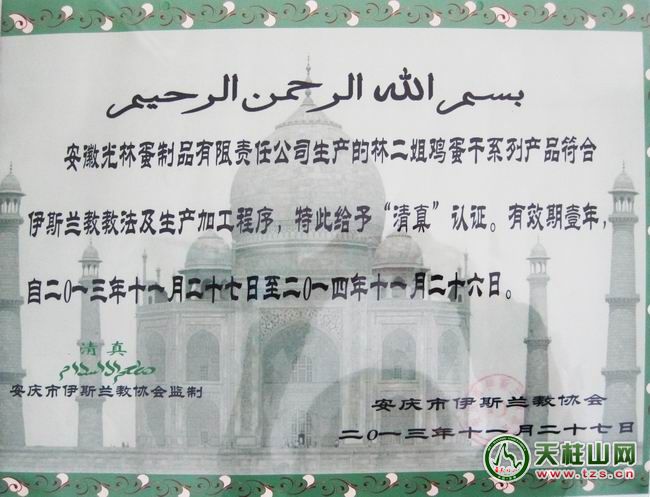 بسم الله الرحمن الرحيم
安徽光林蛋制品有限责任公司生产的林二姐鸡蛋干系列产品符合
伊斯兰教教法及生产加工程序，特此给予“清真”认证。有效期壹年，
自二〇一三年十一月二十七日至二〇一四年十一月二十六日。
清真
安庆市伊斯兰教协会监制
安庆市伊斯兰教协会
二〇一三年十一月二十七日
天柱山网
www.tzs.cn